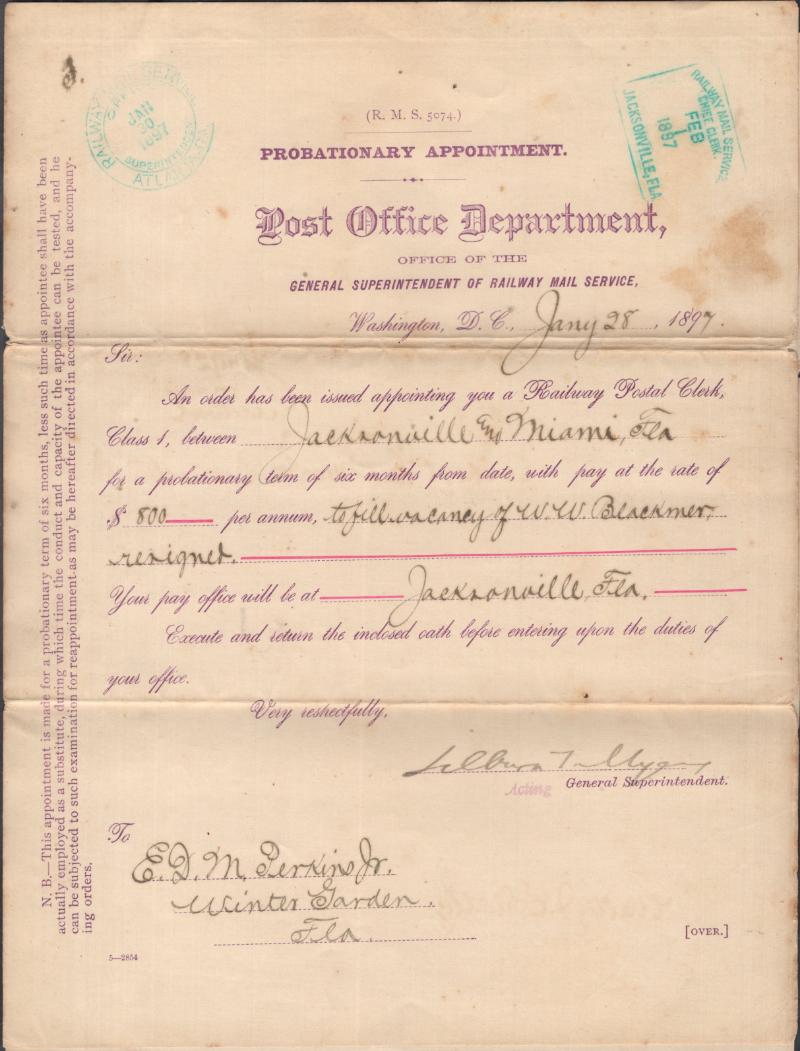 RAILWAY MAIL SERVICE
OFFICE
JAN
30
1897
SUPERINTENDENT
ATLANTA, GA.
RAILWAY MAIL SERVICE
CHIEF CLERK.
FEB
1
1897
JACKSONVILLE, FLA.
(R. M. S. 5074.)
PROBATIONARY APPOINTMENT.
Post Office Department,
OFFICE OF THE
GENERAL SUPERINTENDENT OF RAILWAY MAIL SERVICE,
Washington, D. C., Jany 28, 1897.
Sir:
An order has been issued appointing you a Railway Postal Clerk,
Class 1, between Jacksonville and Miami, Fla
for a probationary term of six months from date, with pay at the rate of
$ 800 per annum, to fill vacancy of W. W. Blackmer,
resigned.
Your pay office will be at Jacksonville, Fla.
Execute and return the inclosed oath before entering upon the duties of
your office.
Very respectfully,
Acting General Superintendent.
To
E. D. M. Perkins Jr.
Winter Garden.
Fla.
[OVER.]
5—2854
N. B.—This appointment is made for a probationary term of six months, less such time as appointee shall have been
actually employed as a substitute, during which time the conduct and capacity of the appointee can be tested, and he
can be subjected to such examination for reappointment as may be hereafter directed in accordance with the accompany-
ing orders.